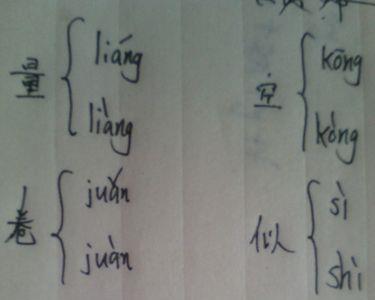 量 liáng liàng
空 kōng kòng
卷 juǎn juàn
似 sì shì